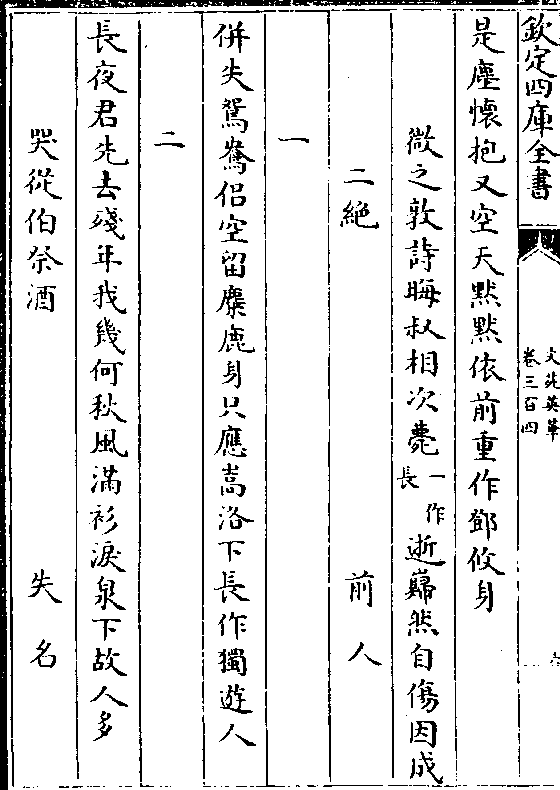 欽定四庫全書
文苑英華
卷三百四
是塵懷抱又空天黙黙依前重作鄧攸身
微之敦詩晦叔相次薨一作長逝巋然自傷因成
二絶 前人
一
併失鴛鸞侶空留麋鹿身只應嵩洛下長作獨遊人
二
長夜君先去殘年我幾何秋風滿衫淚泉下故人多
哭從伯祭酒 失名